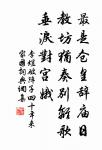 最是仓皇辞庙日
教坊犹奏别离歌
垂泪对宫娥
李煜破阵子四十年来
家国词典调集